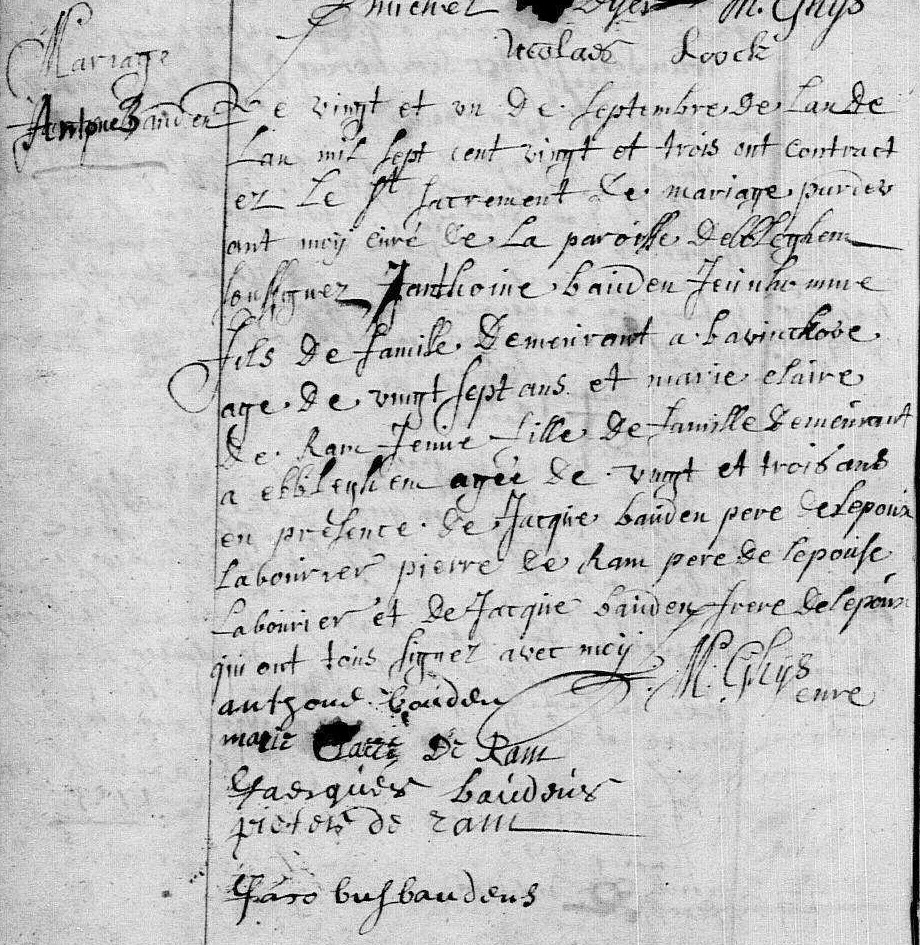 michiel M. Ghys
nicolaes Loock
Mariage
Antone Bauden
Le vingt et un de septembre de lan de
Lan mil sept cent vingt et trois ont contract
ez Le St sacrement de mariage pardev
ant moÿ curé de La paroisse Debbleghem
soussignez Janthoine bauden Jeunhomme
fils de famille Demeurant a bavinckove
age de vingt sept ans et marie claire
de Ram Jeune fille de famille demeurant
a ebbleghem agée de vingt et trois ans
en présence de Jacque bauden pere de lepoux
Labourier pierre de Ram pere de lepouse
Labourier et de Jacque bauden frere de lepoux
qui ont tous signez avec moÿ
M. Ghÿs
cure
anthone bauden
marie Claere De Ram
Jacques baudens
pieter de ram
Jacobus baudens